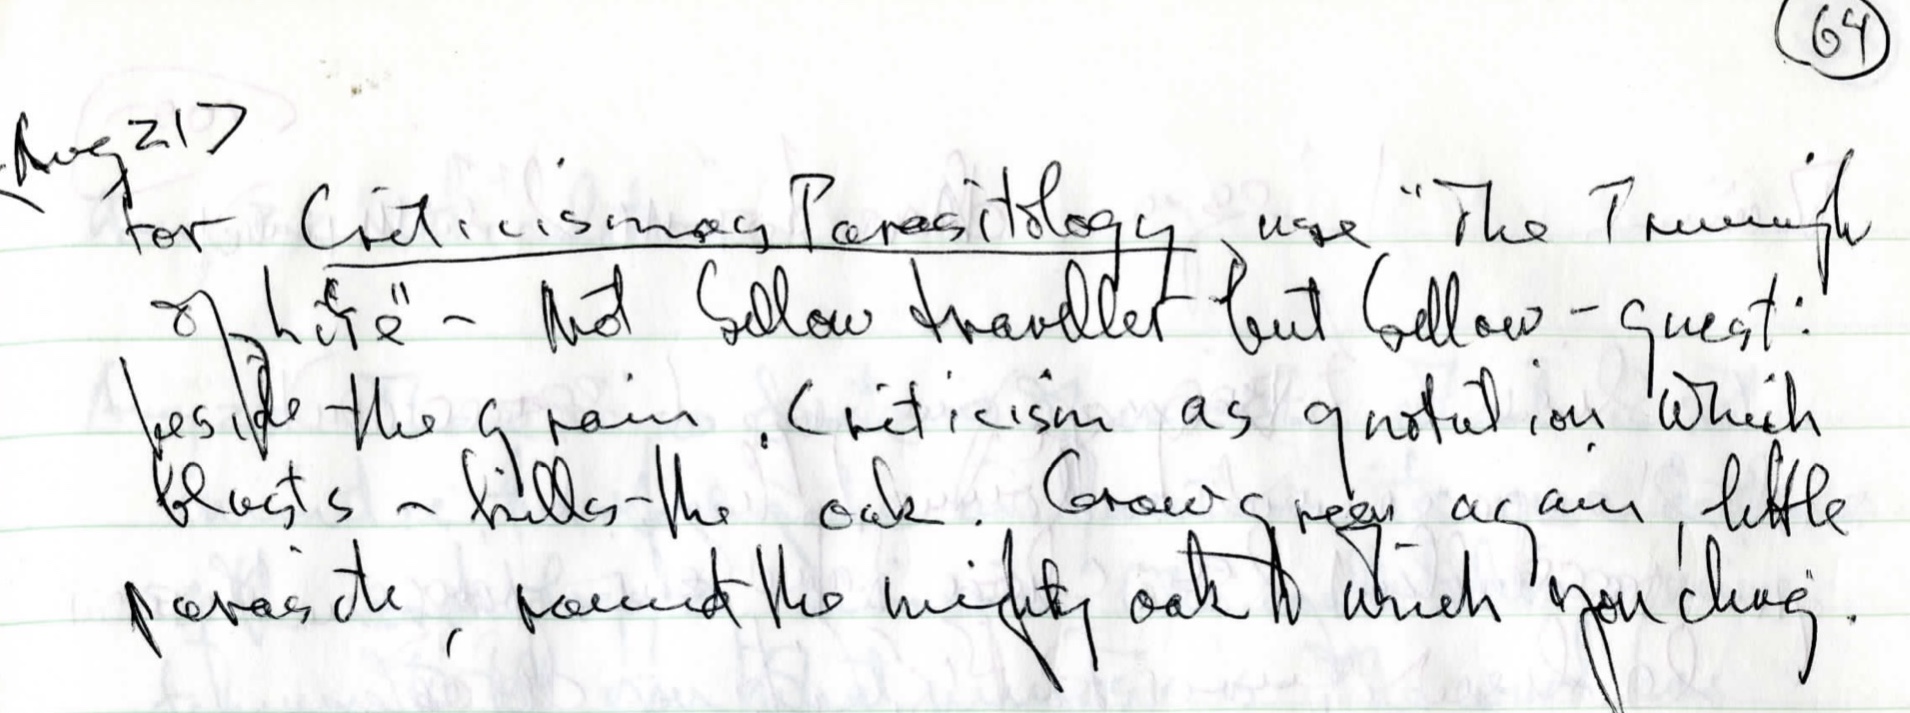 64
Aug 217
For Criticism as Parasitology, use "The Triumph
of Life" - Not fellow traveller but fellow-guest:
beside the grain. Criticism as quotation which
blasts - kills - the oak. Grow green again, little
parasite, round the mighty oak to which you cling.